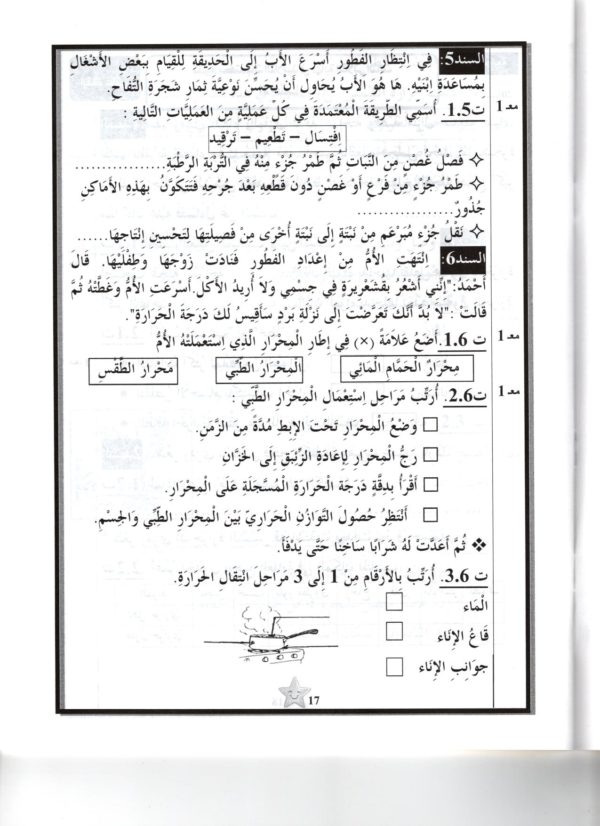 السند5: فِي اِنْتِظَارِ الفَطُورِ أَسْرَعَ الأَبُ إِلَى الْحَدِيقَةِ لِلْقِيَامِ بِبَعْضِ الأَشْغَالِ
بِمُسَاعَدَةِ اِبْنَيْهِ. هَا هُوَ الأَبُ يُحَاوِلُ أَنْ يُحَسِّنَ نَوْعِيَّةَ ثِمَارِ شَجَرَةِ التُّفَاحِ.
مـعـ 1 ت1.5. أُسَمِّي الطَّرِيقَةَ الْمُعْتَمَدَةَ فِي كُلِّ عَمَلِيَّةٍ مِنَ العَمَلِيَّاتِ التَّالِيَةِ :
اِفْتِسَال – تَطْعِيم – تَرْقِيد
✧ فَصْلُ غُصْنٍ مِنَ النَّبَاتِ ثُمَّ طَمْرُ جُزْءٍ مِنْهُ فِي التُّرْبَةِ الرَّطْبَةِ..................
✧ طَمْرُ جُزْءٍ مِنْ فَرْعٍ أَوْ غُصْنٍ دُونَ قَطْعِهِ بَعْدَ جُرْحِهِ فَتَتَكَوَّنُ بِهَذِهِ الأَمَاكِنِ
جُذُورٌ.......................
✧ نَقْلُ جُزْءٍ مُبَرْعَمٍ مِنْ نَبْتَةٍ إِلَى نَبْتَةٍ أُخْرَى مِنْ فَصِيلَتِهَا لِتَحْسِينِ إِنْتَاجِهَا......
السند6: اِنْتَهَتِ الأُمُّ مِنْ إِعْدَادِ الفَطُورِ فَنَادَتْ زَوْجَهَا وَطِفْلَيْهَا. قَالَ
أَحْمَدُ:"إِنَّنِي أَشْعُرُ بِقُشَعْرِيرَةٍ فِي جِسْمِي وَلاَ أُرِيدُ الأَكْلَ.أَسْرَعَتِ الأُمُّ وَغَطَّتْهُ ثُمَّ
قَالَتْ :"لاَ بُدَّ أَنَّكَ تَعَرَّضْتَ إِلَى نَزْلَةِ بَرْدٍ سَأَقِيسُ لَكَ دَرَجَةَ الْحَرَارَةِ".
مـعـ 1 ت 1.6.أَضَعُ عَلاَمَةَ (×) فِي إِطَارِ الْمِحْرَارِ الَّذِي اِسْتَعْمَلَتْهُ الأُمُّ
مِحْرَارُ الْحَمَّامِ الْمَائِي الْمِحْرَارُ الطِّبِّي مَحْرَارُ الطَّقْسِ
مـعـ 1 ت2.6. أُرَتِّبُ مَرَاحِلَ اِسْتِعْمَالِ الْمِحْرَارِ الطِّبِّي :
وَضْعُ الْمِحْرَارِ تَحْتَ الإِبِطِ مُدَّةً مِنَ الزَّمَنِ.
رَجُّ الْمِحْرَارِ لِإِعَادَةِ الزِّئْبَقِ إِلَى الْخَزَّانِ
أَقْرَأُ بِدِقَّةٍ دَرَجَةَ الْحَرَارَةِ الْمُسَجَّلَةِ عَلَى الْمِحْرَارِ.
أَنْتَظِرُ حُصُولَ التَّوَازُنِ الْحَرَارِيِّ بَيْنَ الْمِحْرَارِ الطِّبِّي وَالجِسْمِ.
❖ ثُمَّ أَعَدَّتْ لَهُ شَرَابًا سَاخِنًا حَتَّى يَدْفَأَ.
ت 3.6. أُرَتِّبُ بِالأَرْقَامِ مِنْ 1 إِلَى 3 مَرَاحِلَ انْتِقَالِ الْحَرَارَةِ.
الْمَاء
قَاعُ الإِنَاء
جَوَانِبِ الإِنَاء
17